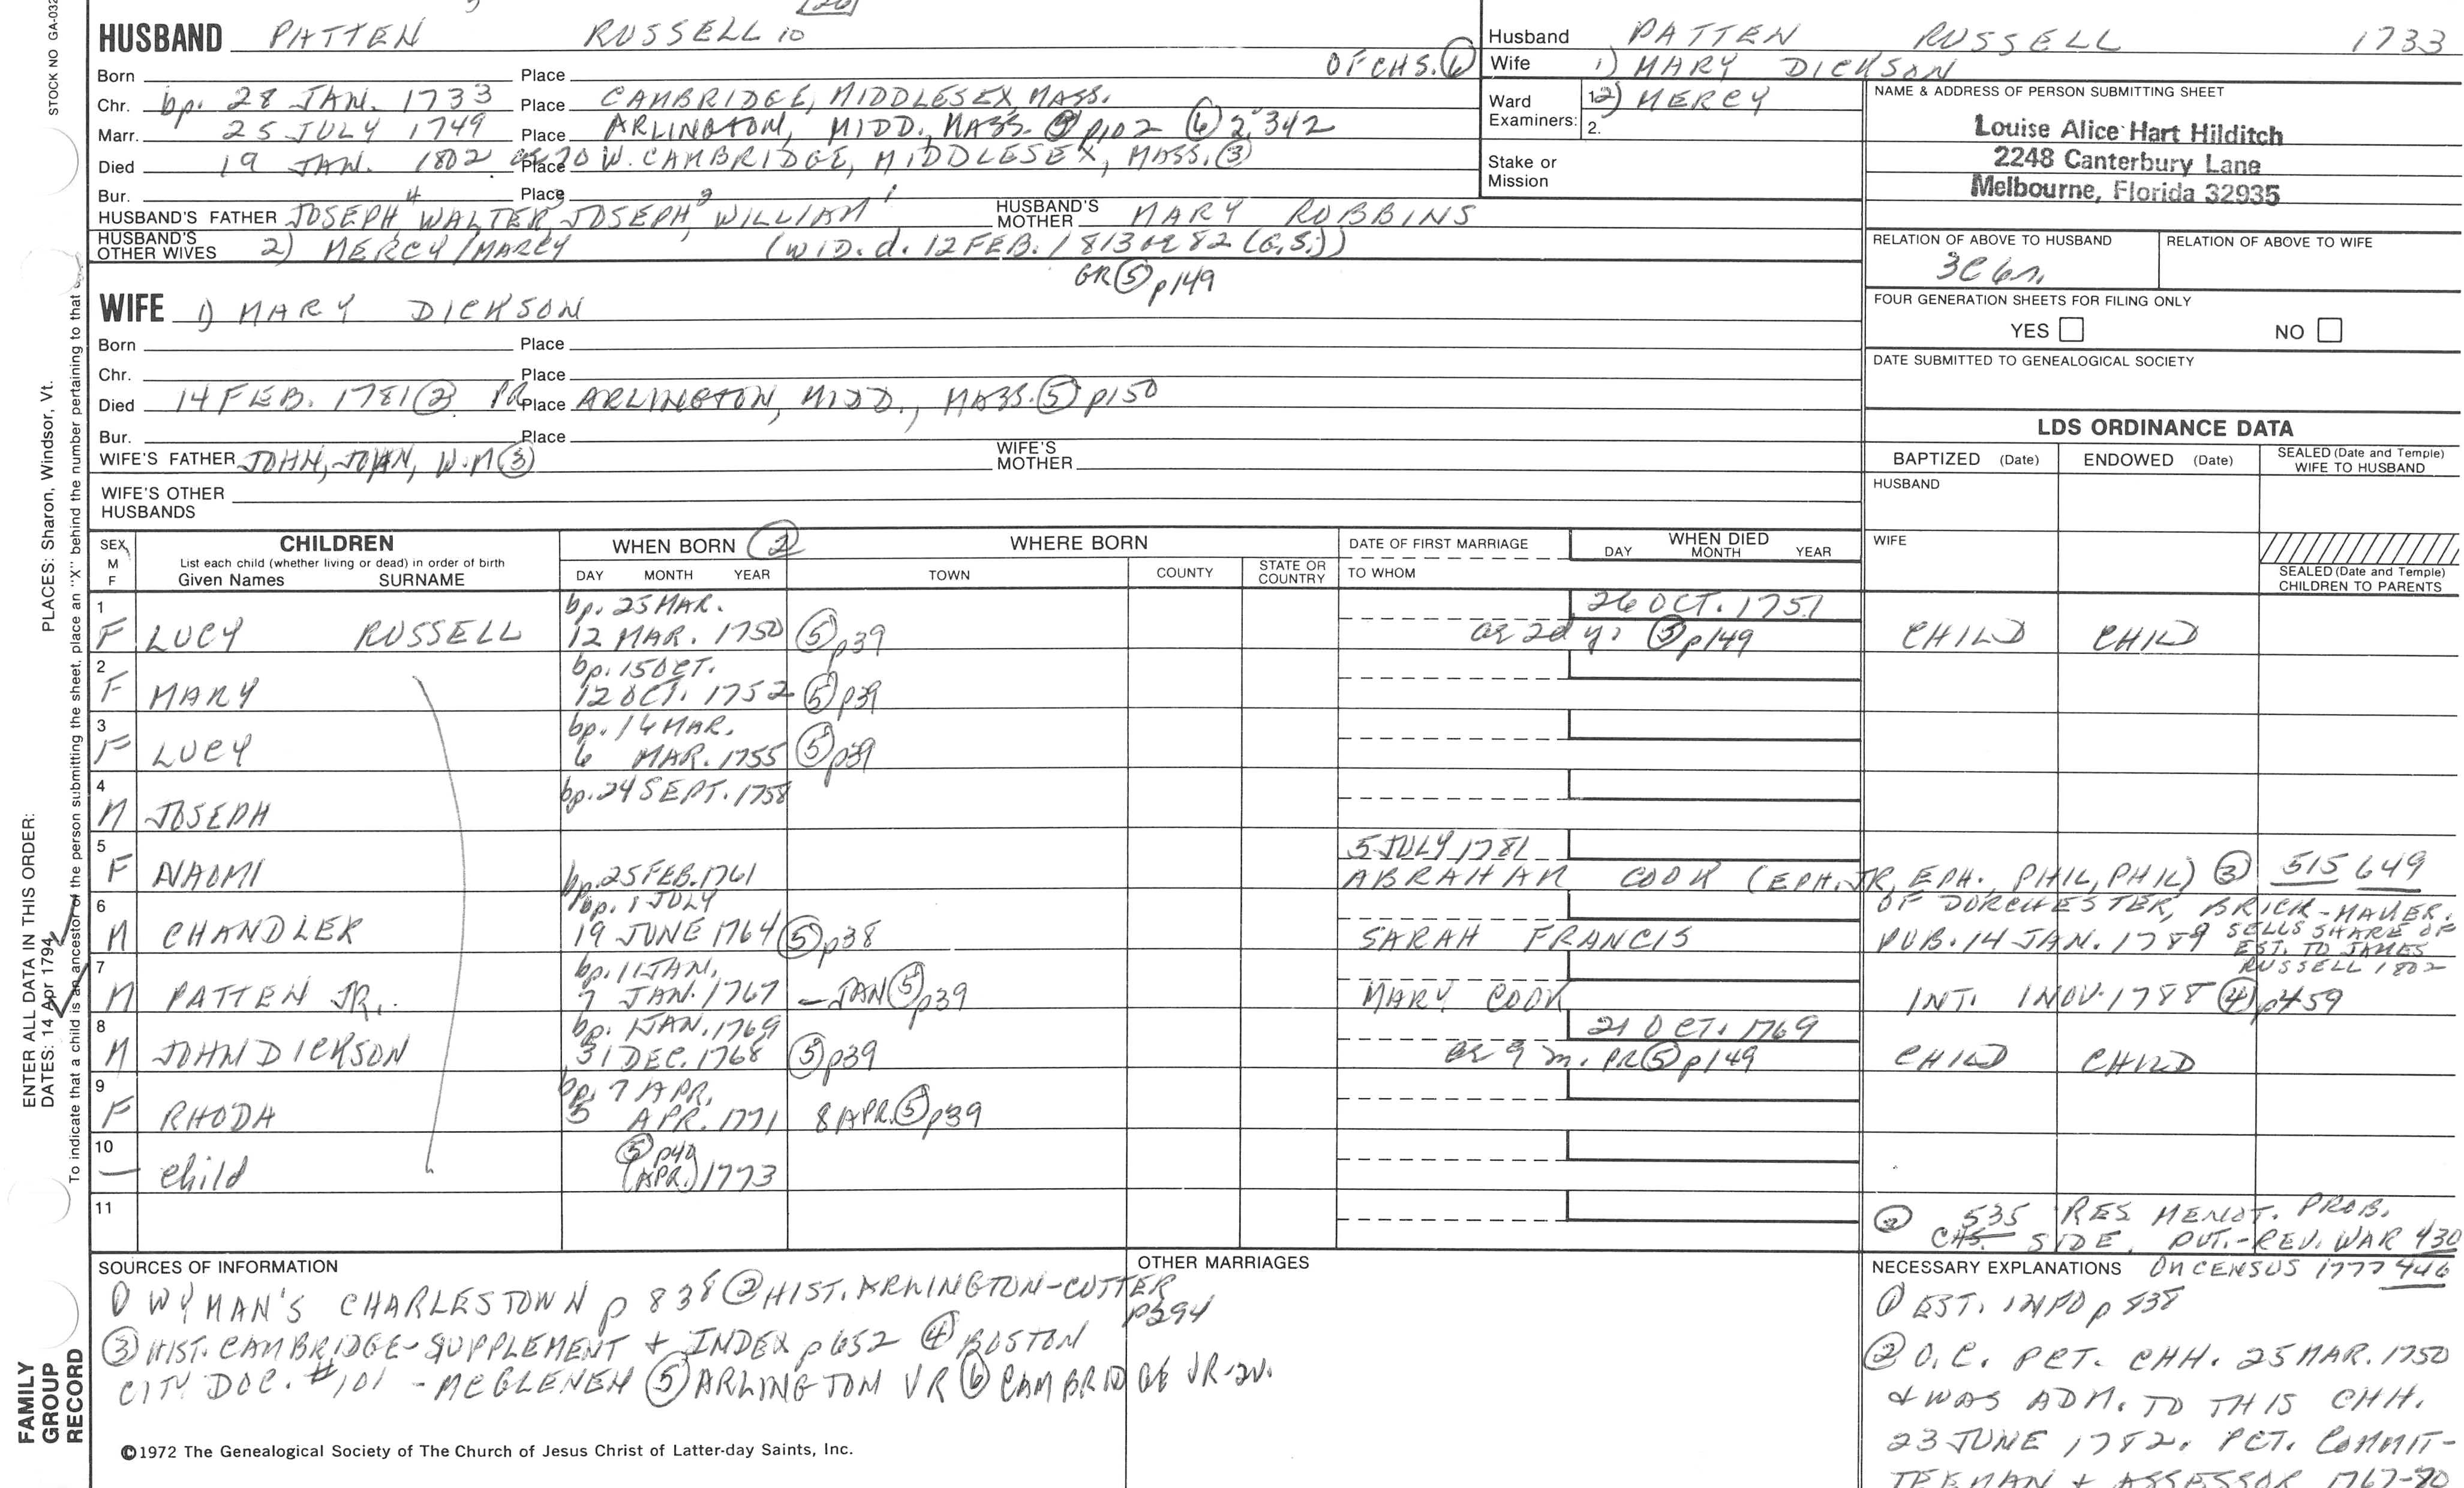 STOCK NO GA-032
HUSBAND PATTEN RUSSELL 10
OF CHS. (6)
Born Place
Chr. bp. 28 JAN. 1733 Place CAMBRIDGE, MIDDLESEX, MASS.
Marr. 25 JULY 1749 Place ARLINGTON, MIDD., MASS. (5) p102 (6) 2,342
Died 19 JAN. 1802 ae 70 Place W. CAMBRIDGE, MIDDLESEX, MASS. (3)
Bur. Place
HUSBAND'S FATHER JOSEPH 4, WALTER, 3 JOSEPH, 2 WILLIAM 1 HUSBAND'S MOTHER MARY ROBBINS
HUSBAND'S OTHER WIVES 2) MERCY/MARCY (WID. d. 12 FEB. 1813 ae 82 (G.S.))
GR (5) p149
WIFE 1) MARY DICKSON
Born Place
Chr. Place
Died 14 FEB. 1781 (2) PR Place ARLINGTON, MIDD., MASS. (5) p150
Bur. Place
WIFE'S FATHER JOHN, JOHN, WM (3) WIFE'S MOTHER
WIFE'S OTHER HUSBANDS
Husband PATTEN RUSSELL 1733
Wife 1) MARY DICKSON
Ward Examiners: 1. 2) MERCY
2.
Stake or Mission
NAME & ADDRESS OF PERSON SUBMITTING SHEET
Louise Alice Hart Hilditch
2248 Canterbury Lane
Melbourne, Florida 32935
RELATION OF ABOVE TO HUSBAND RELATION OF ABOVE TO WIFE
3C 6r.
FOUR GENERATION SHEETS FOR FILING ONLY
YES NO
DATE SUBMITTED TO GENEALOGICAL SOCIETY
LDS ORDINANCE DATA
BAPTIZED (Date) ENDOWED (Date) SEALED (Date and Temple) WIFE TO HUSBAND
HUSBAND
WIFE
SEALED (Date and Temple) CHILDREN TO PARENTS
SEX M F CHILDREN WHEN BORN (2) WHERE BORN DATE OF FIRST MARRIAGE WHEN DIED
List each child (whether living or dead) in order of birth
Given Names SURNAME DAY MONTH YEAR TOWN COUNTY STATE OR COUNTRY TO WHOM DAY MONTH YEAR
1 bp. 25 MAR. 26 OCT. 1751
F LUCY RUSSELL 12 MAR. 1750 (5) p39 ae 2d y. (5) p149 CHILD CHILD
2 bp. 15 OCT.
F MARY 12 OCT. 1752 (5) p39
3 bp. 16 MAR.
F LUCY 6 MAR. 1755 (5) p39
4 bp. 24 SEPT. 1758
M JOSEPH
5 5 JULY 1781
F NAOMI bp. 25 FEB. 1761 ABRAHAM COOK (EPH. JR, EPH., PHIL, PHIL) (3) 515 649
6 bp. 1 JULY OF DORCHESTER, BRICK-MAKER.
M CHANDLER 19 JUNE 1764 (5) p38 SARAH FRANCIS PUB. 14 JAN. 1789 SELLS SHARE OF
EST. TO JAMES
RUSSELL 1802
7 bp. 11 JAN.
M PATTEN JR. 7 JAN. 1767 — JAN (5) p39 MARY COOK INT. 1 NOV. 1788 (4) p459
8 bp. 1 JAN. 1769 21 OCT. 1769
M JOHN DICKSON 31 DEC. 1768 (5) p39 ae 9 m. PR (5) p149 CHILD CHILD
9 bp. 7 APR.
F RHODA 5 APR. 1771 8 APR. (5) p39
10 (5) p40
— child (APR.) 1773
11
(2) 535 RES MENOT. PROB.
CHS. SIDE. PVT.-REV. WAR 430
SOURCES OF INFORMATION
(1) WYMAN'S CHARLESTOWN p 838 (2) HIST. ARLINGTON-CUTTER
p294
(3) HIST. CAMBRIDGE-SUPPLEMENT + INDEX p652 (4) BOSTON
CITY DOC. #101 - MCGLENEN (5) ARLINGTON VR (6) CAMBRIDGE VR-2v.
©1972 The Genealogical Society of The Church of Jesus Christ of Latter-day Saints, Inc.
OTHER MARRIAGES
NECESSARY EXPLANATIONS ON CENSUS 1777 446
(1) EST. INFO p 838
(2) O.C. PCT. CHH. 25 MAR. 1750
& WAS ADM. TO THIS CHH.
23 JUNE 1782. PCT. COMMIT-
TEEMAN & ASSESSOR 1767-80
ENTER ALL DATA IN THIS ORDER:
DATES: 14 Apr 1794 PLACES: Sharon, Windsor, Vt.
To indicate that a child is an ancestor of the person submitting the sheet, place an "X" behind the number pertaining to that
FAMILY
GROUP
RECORD